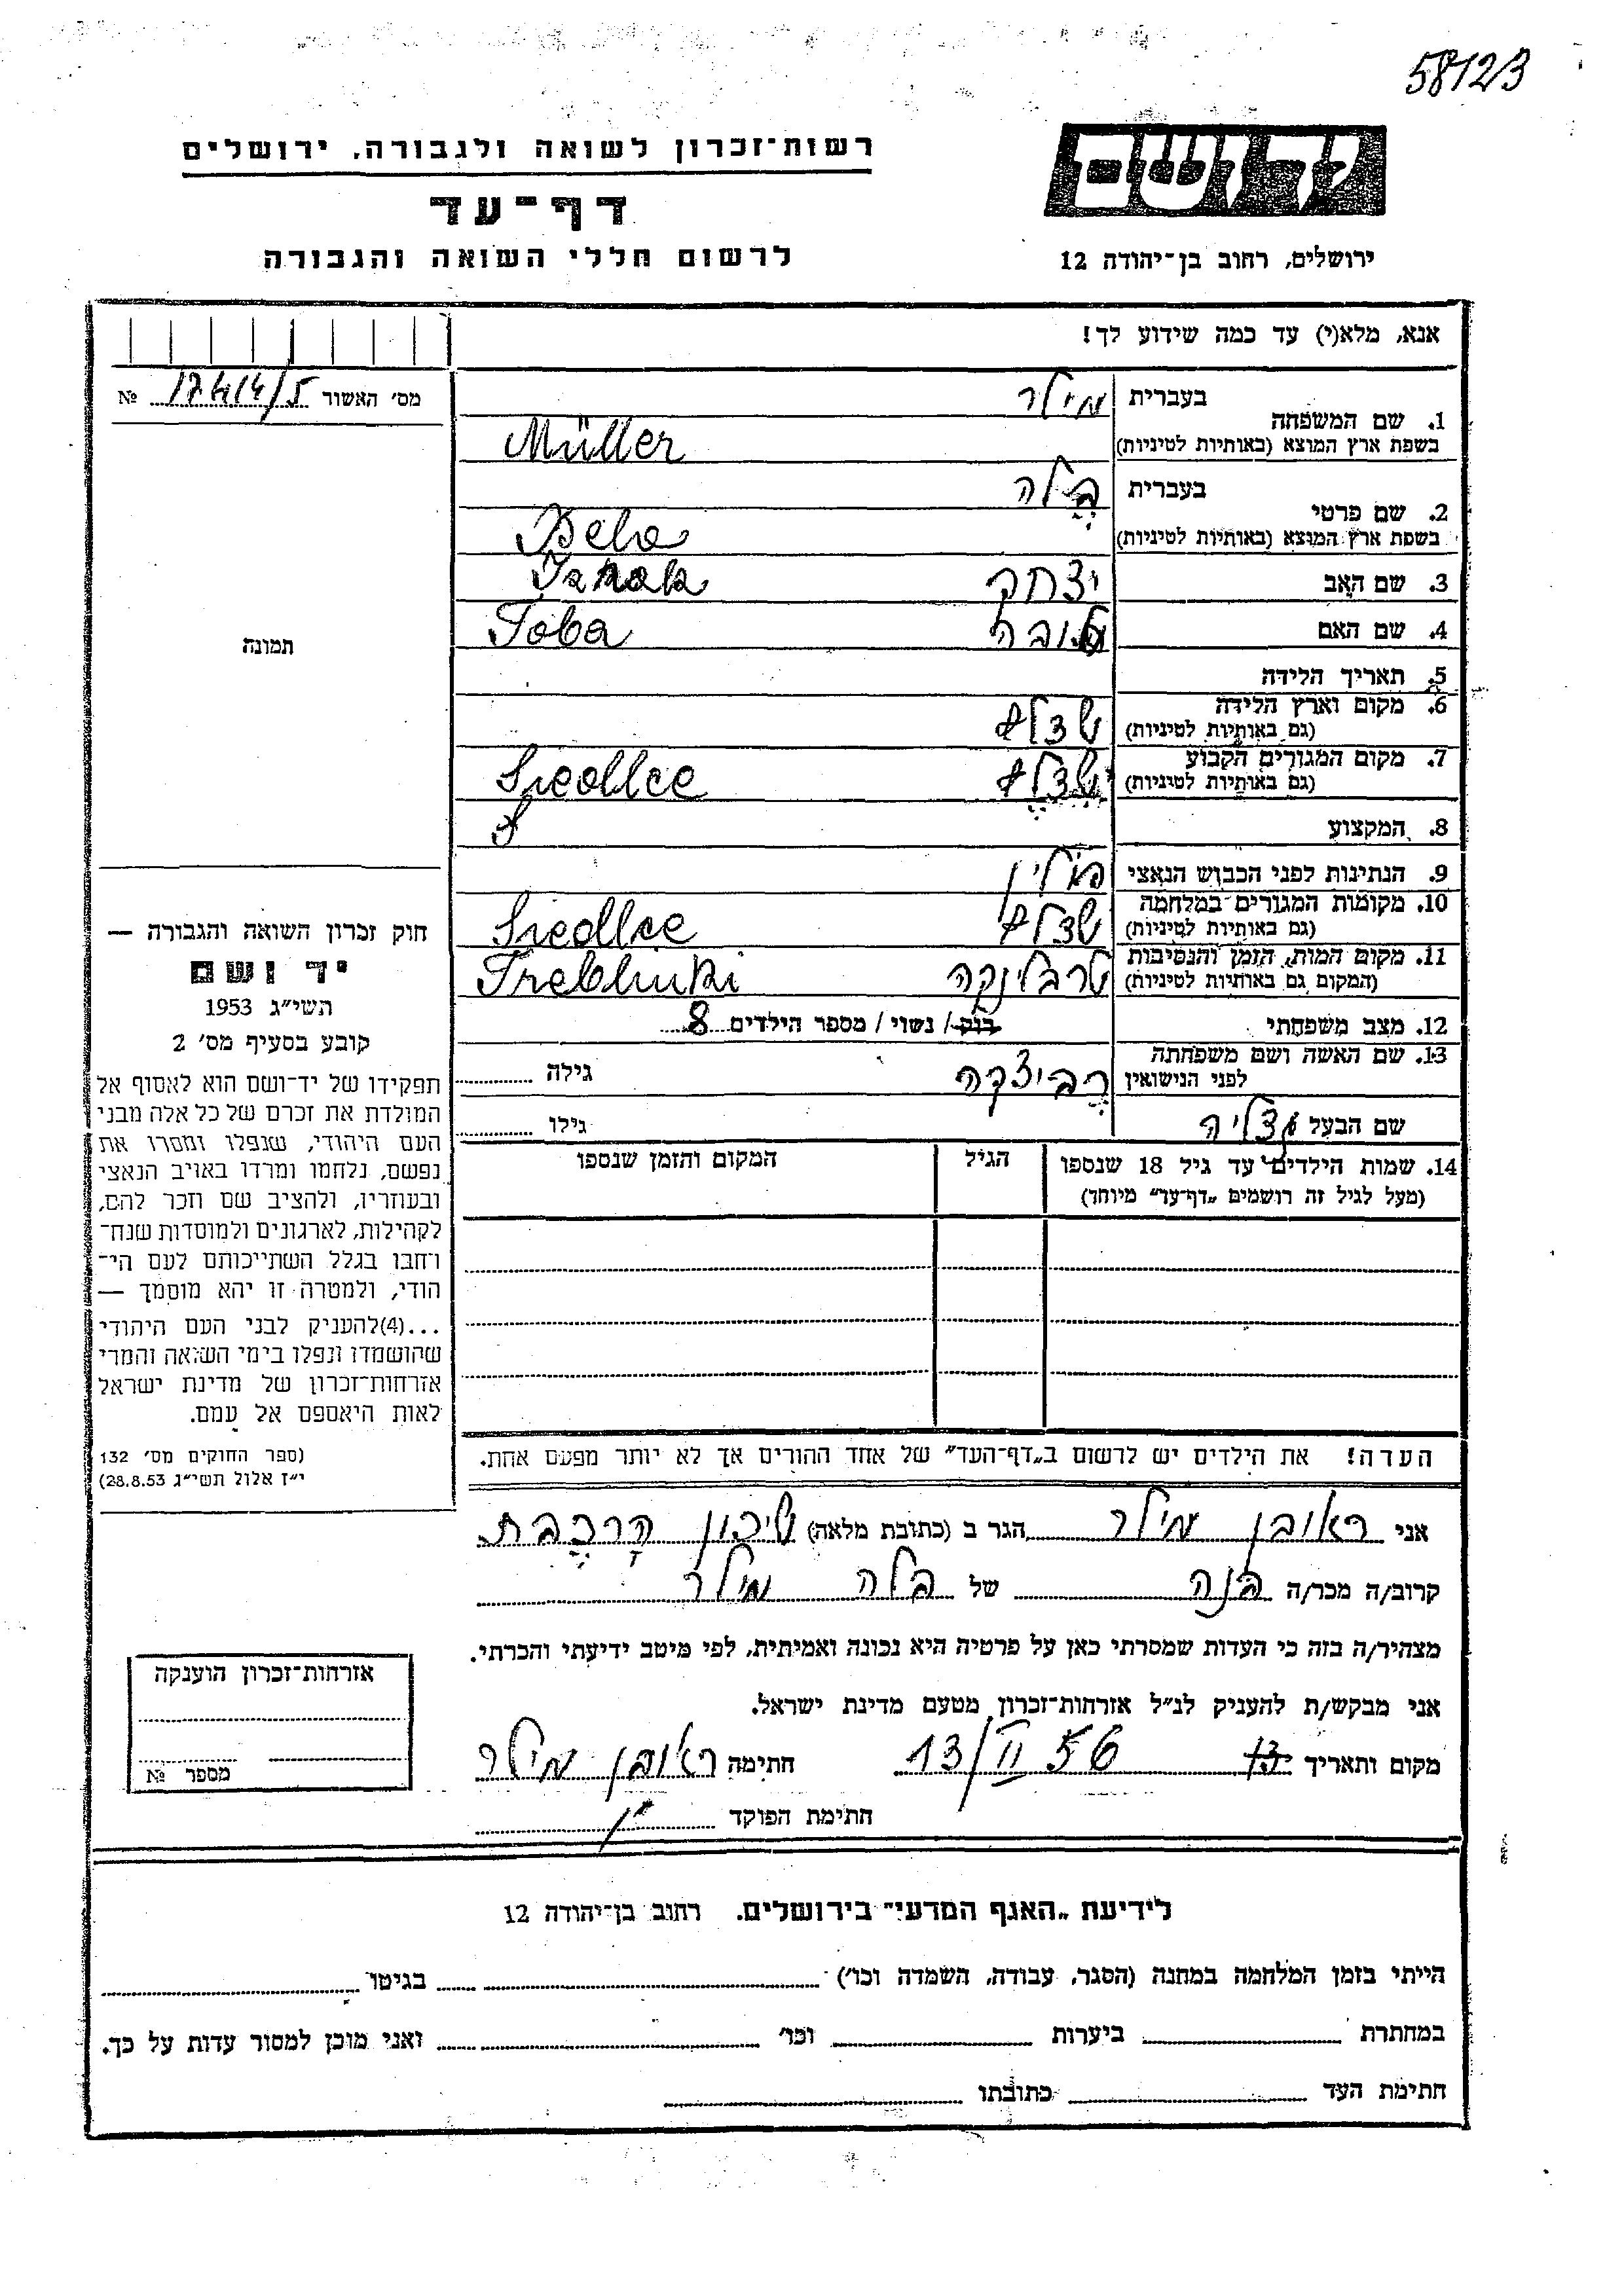 58123
ידושם
רשות־זכרון לשואה ולגבורה, ירושלים
דף־עד
לרשום חללי השואה והגבורה
ירושלים, רחוב בן־יהודה 12
אנא, מלא(י) עד כמה שידוע לך!
מס׳ האשור №
1. שם המשפחה
בעברית מילר
בשפת ארץ המוצא (באותיות לטיניות) Müller
2. שם פרטי
בעברית בלה
בשפת ארץ המוצא (באותיות לטיניות) Bela
3. שם האב יצחק
4. שם האם טובה Toba
5. תאריך הלידה
6. מקום וארץ הלידה
(גם באותיות לטיניות) שדלץ
7. מקום המגורים הקבוע
(גם באותיות לטיניות) שדלץ Siedlce
8. המקצוע
9. הנתינות לפני הכבוש הנאצי פולין
10. מקומות המגורים במלחמה
(גם באותיות לטיניות) שדלץ Siedlce
11. מקום המות, הזמן והנסיבות
(המקום גם באותיות לטיניות) טרבלינקה
12. מצב משפחתי רוק / נשוי / מספר הילדים 8
13. שם האשה ושם משפחתה
לפני הנישואין גילה
שם הבעל גילו
14. שמות הילדים עד גיל 18 שנספו
(מעל לגיל זה רושמים „דף־עד” מיוחד)
הגיל
המקום והזמן שנספו
הערה! את הילדים יש לרשום ב„דף־העד” של אחד ההורים אך לא יותר מפעם אחת.
אני ראובן מילר הגר ב (כתובת מלאה) שיכון הרכבת
קרוב/ה מכר/ה בנה של בלה מילר
מצהיר/ה בזה כי העדות שמסרתי כאן על פרטיה היא נכונה ואמיתית, לפי מיטב ידיעתי והכרתי.
אני מבקש/ת להעניק לנ״ל אזרחות־זכרון מטעם מדינת ישראל.
מקום ותאריך 13 13/II 56 חתימה ראובן מילר
חתימת הפוקד
תמונה
חוק זכרון השואה והגבורה —
יד ושם
תשי״ג 1953
קובע בסעיף מס׳ 2
תפקידו של יד־ושם הוא לאסוף אל
המולדת את זכרם של כל אלה מבני
העם היהודי, שנפלו ומסרו את
נפשם, נלחמו ומרדו באויב הנאצי
ובעוזריו, ולהציב שם וזכר להם,
לקהילות, לארגונים ולמוסדות שנח־
רחבו בגלל השתייכותם לעם הי־
הודי, ולמטרה זו יהא מוסמך —
...(4)להעניק לבני העם היהודי
שהושמדו ונפלו בימי השואה והמרי
אזרחות־זכרון של מדינת ישראל
לאות היאספם אל עמם.
(ספר החוקים מס׳ 132
י״ז אלול תשי״ג 28.8.53)
אזרחות־זכרון הוענקה
מספר №
לידיעת „האגף המדעי” בירושלים. רחוב בן־יהודה 12
הייתי בזמן המלחמה במחנה (הסגר, עבודה, השמדה וכו׳) בגיטו
במחתרת ביערות וכו׳ ואני מוכן למסור עדות על כך.
חתימת העד כתובתו